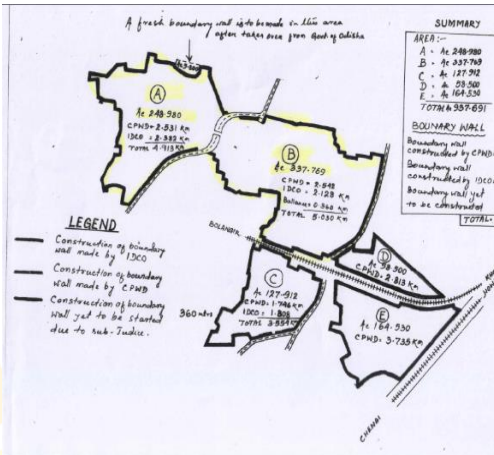 A fresh boundary wall is to be made in this area
after taken over from Govt of Odisha
SUMMARY
AREA:-
A = Ac 248.980
B = Ac 337.769
C = Ac 127.912
D = Ac 58.500
E = Ac 164.530
TOTAL Ac 937.691
BOUNARY WALL
Boundary wall
constructed by CPWD
Boundary wall
constructed by IDCO
Boundary wall yet
to be constructed
TOTAL
A
Ac 248.980
CPWD = 2.531 Km
TOTAL 4.913 Km
B
Ac 337.769
CPWD = 2.542
IDCO = 2.128 Km
TOTAL 5.030 Km
LEGEND
Construction of boundary
wall made by IDCO
Construction of boundary
wall made by CPWD
Construction of boundary
wall yet to be started
due to sub-Judice.
BOLANGIR
C
Ac 127.912
CPWD = 1.746 Km
IDCO = 1.808
TOTAL 3.554 Km
360 mtrs
D
Ac 58.500
CPWD = 2.313 Km
E
Ac 164.530
CPWD = 3.735 Km
CHENAI